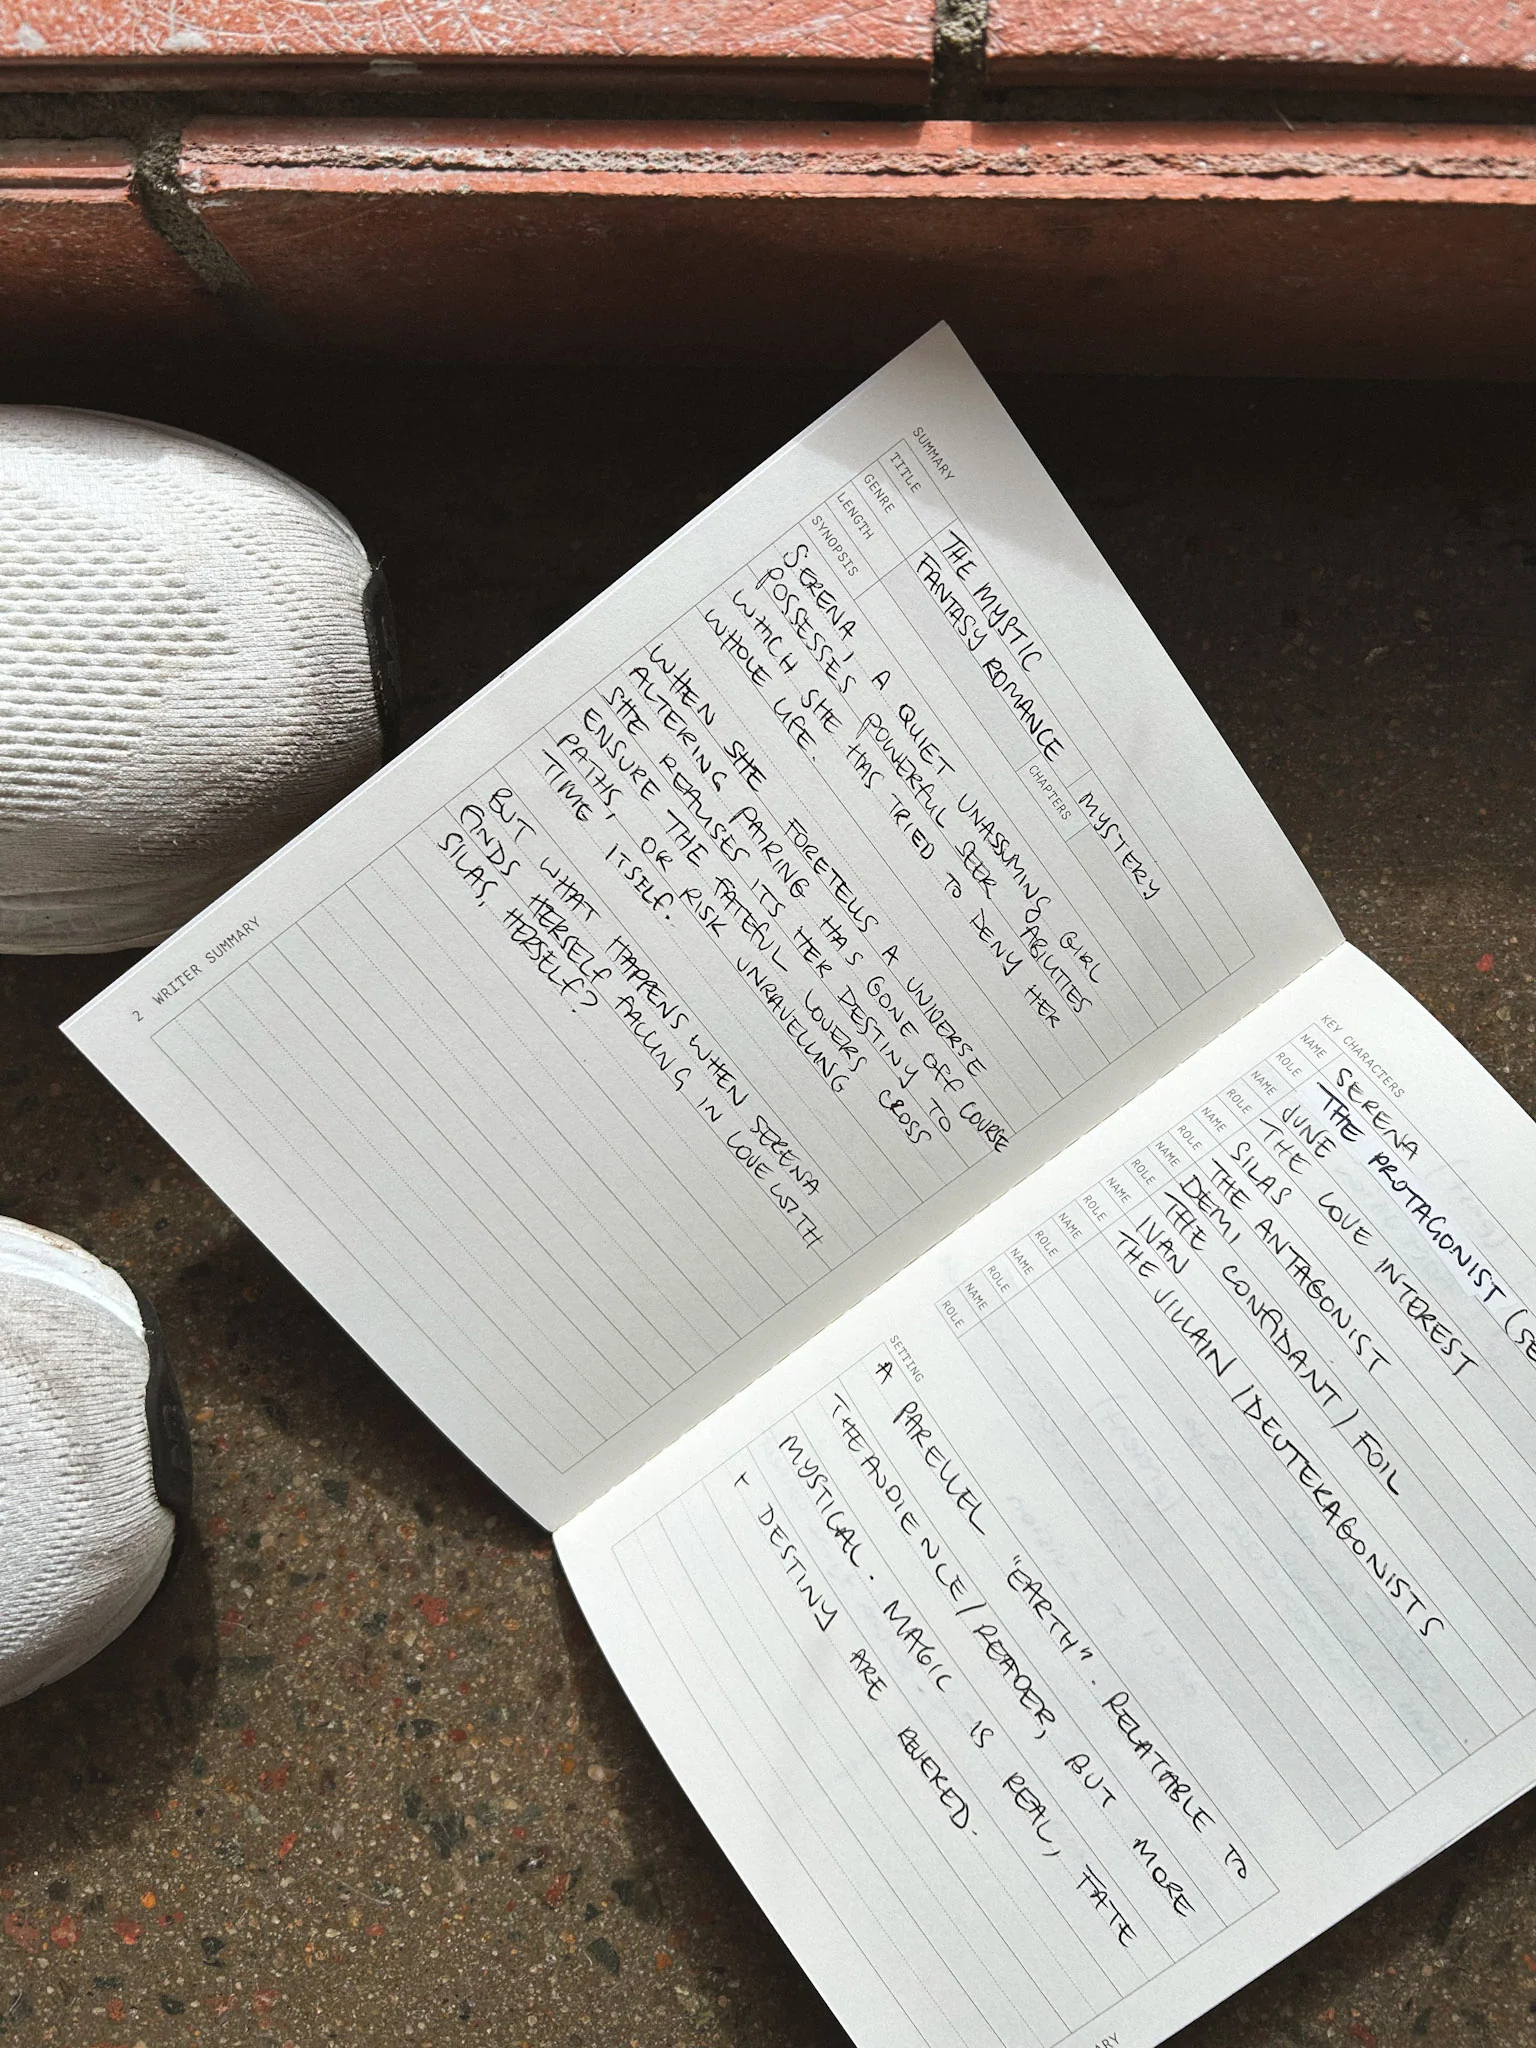 SUMMARY
TITLE THE MYSTIC
GENRE FANTASY ROMANCE MYSTERY
LENGTH CHAPTERS
SYNOPSIS
SERENA, A QUIET UNASSUMING GIRL
POSSESSES POWERFUL SEER ABILITIES
WHICH SHE HAS TRIED TO DENY HER
WHOLE LIFE.
WHEN SHE FORETELLS A UNIVERSE
ALTERING PAIRING HAS GONE OFF COURSE
SHE REALISES ITS HER DESTINY TO
ENSURE THE FATEFUL LOVERS CROSS
PATHS, OR RISK UNRAVELLING
TIME ITSELF.
BUT WHAT HAPPENS WHEN SERENA
FINDS HERSELF FALLING IN LOVE WITH
SILAS, HERSELF?
2 WRITER SUMMARY
KEY CHARACTERS
NAME SERENA
ROLE THE PROTAGONIST (SE
NAME JUNE
ROLE THE LOVE INTEREST
NAME SILAS
ROLE THE ANTAGONIST
NAME DEMI
ROLE THE CONFIDANT / FOIL
NAME IVAN
ROLE THE VILLAIN / DEUTERAGONISTS
NAME
ROLE
NAME
ROLE
NAME
ROLE
SETTING
A PARELLEL "EARTH". RELATABLE TO
THE AUDIENCE / READER, BUT MORE
MYSTICAL. MAGIC IS REAL, FATE
+ DESTINY ARE REVERED.
ARY